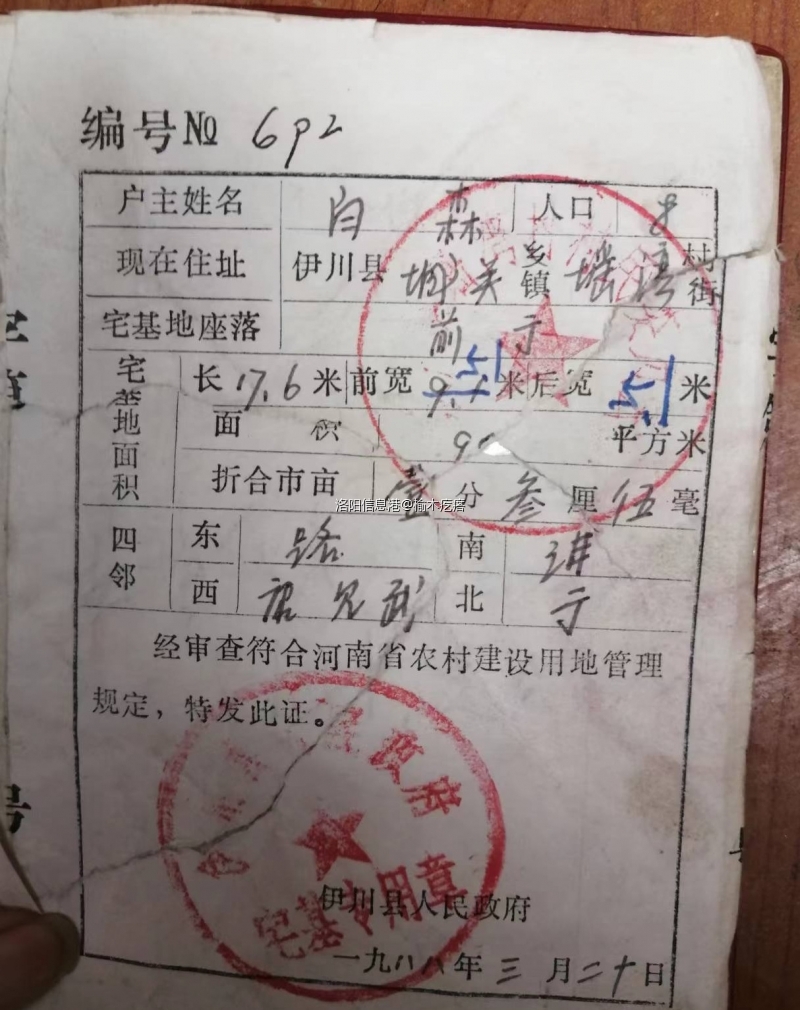 编号№ 692
户主姓名 白森 人口 8
现在住址 伊川县 城关 乡镇 瑶湾 村街
宅基地座落 前
宅基地面积 长17.6米 前宽 5.1 米 后宽 5.1 米
面积 90 平方米
折合市亩 壹分叁厘伍毫
洛阳信息港@榆木疙瘩
四邻 东 路 南
西 武 北
经审查符合河南省农村建设用地管理
规定，特发此证。
政府
宅基专用章
伊川县人民政府
一九八八年三月二十日
号